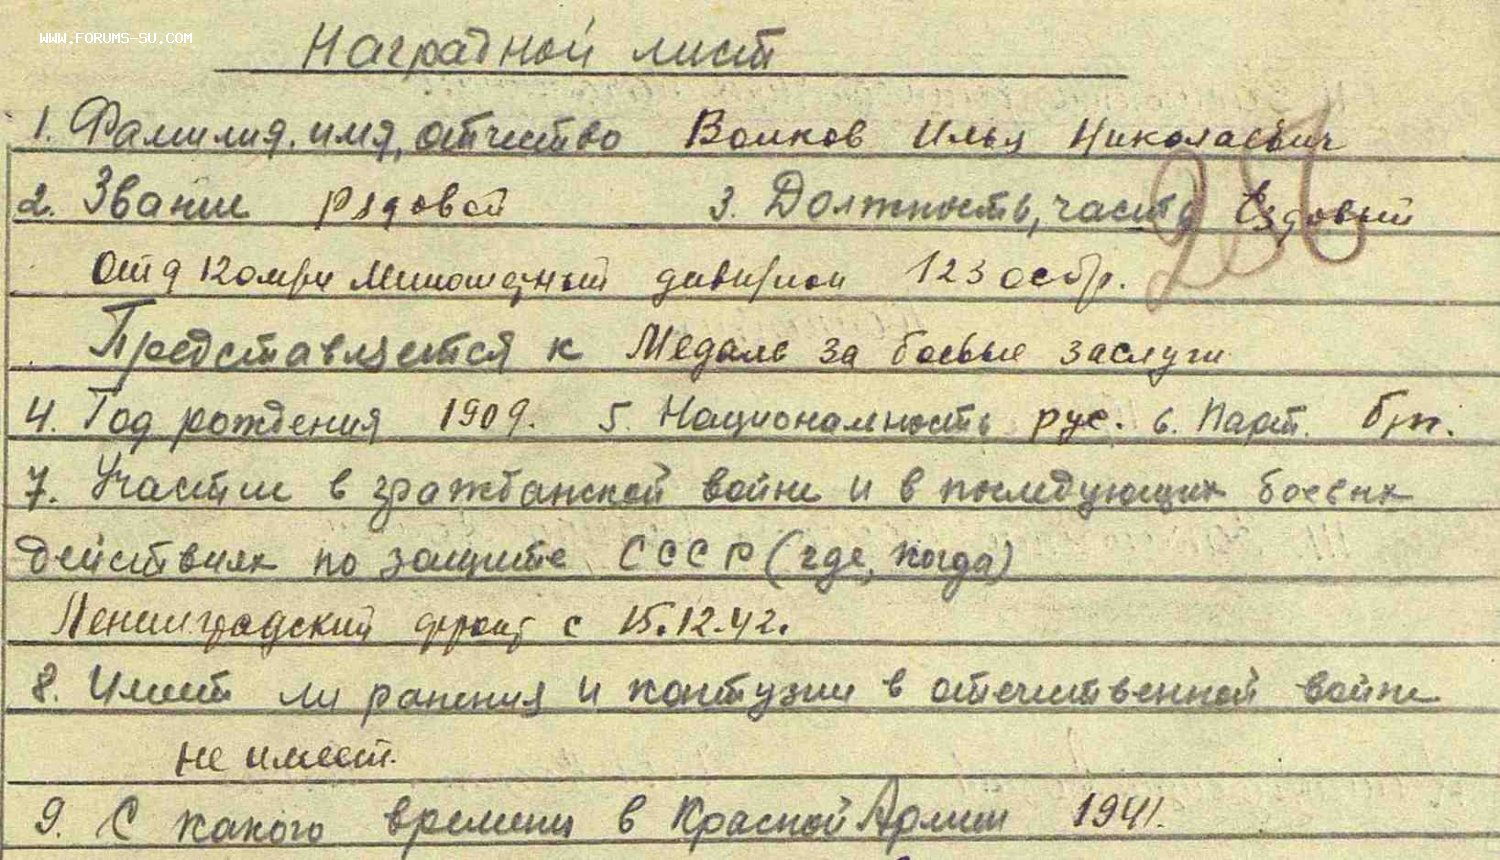 WWW.FORUMS-SU.COM
Наградной лист
1. Фамилия, имя, отчество Волков Илья Николаевич
2. Звание рядовой 3. Должность, часть Ездовый
отд 120 м/м Минометный дивизион 123 осбр.
Представляется к Медаль за боевые заслуги
4. Год рождения 1909. 5. Национальность рус. 6. Парт. б/п.
7. Участие в гражданской войне и в последующих боевых
действиях по защите СССР (где, когда)
Ленинградский фронт с 15.12.42.
8. Имеет ли ранения и контузии в отечественной войне
не имеет.
9. С какого времени в Красной Армии 1941.